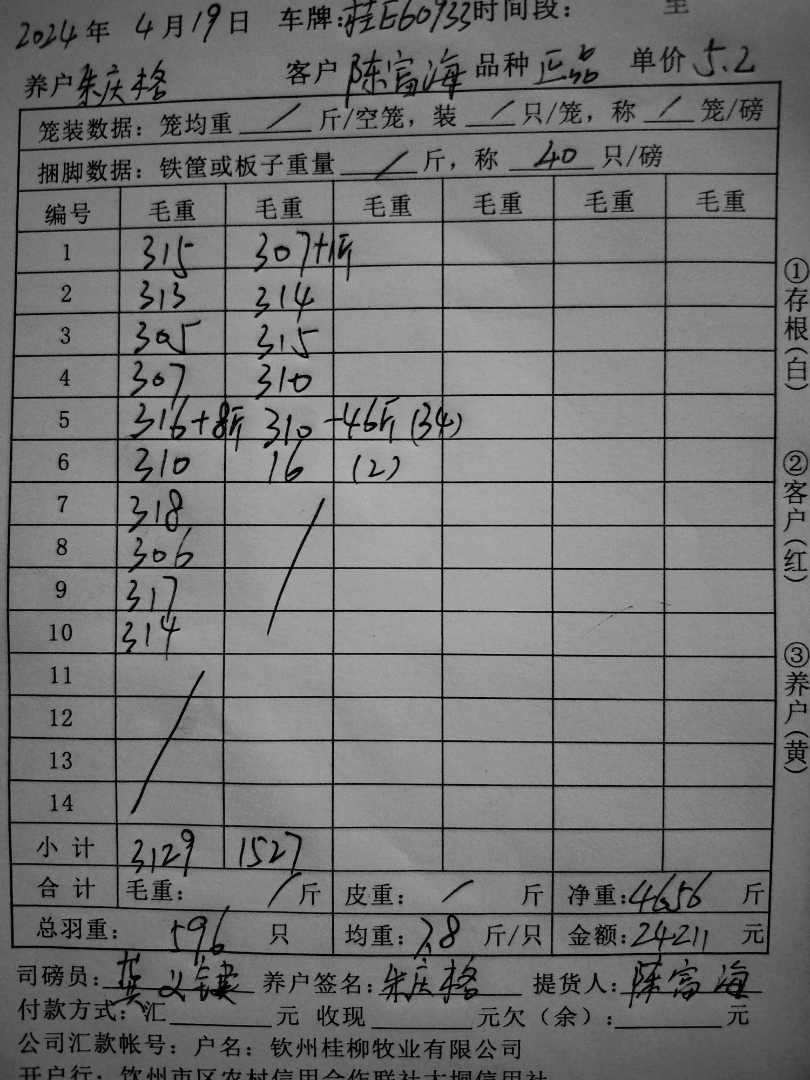 2024年 4月19日 车牌:桂E60933时间段: 至
养户朱庆格 客户 陈富海 品种 正品 单价 5.2
笼装数据: 笼均重 / 斤/空笼, 装 / 只/笼, 称 / 笼/磅
捆脚数据: 铁筐或板子重量 / 斤, 称 40 只/磅
编号 毛重 毛重 毛重 毛重 毛重 毛重
1 315 307+1斤
2 313 314
3 305 315
4 307 310
5 316+8斤 310-46斤(34)
6 310 16 (2)
7 318
8 306
9 317
10 314
11
12
13
14
小 计 3129 1527
合 计 毛重: / 斤 皮重: / 斤 净重:4656 斤
总羽重: 596 只 均重: 7.8 斤/只 金额:24211 元
司磅员: 养户签名: 朱庆格 提货人: 陈富海
付款方式: 汇 元 收现 元欠(余): 元
公司汇款帐号: 户名: 钦州桂柳牧业有限公司
开户行: 钦州市区农村信用合作联社大垌信用社
①存根(白)
②客户(红)
③养户(黄)